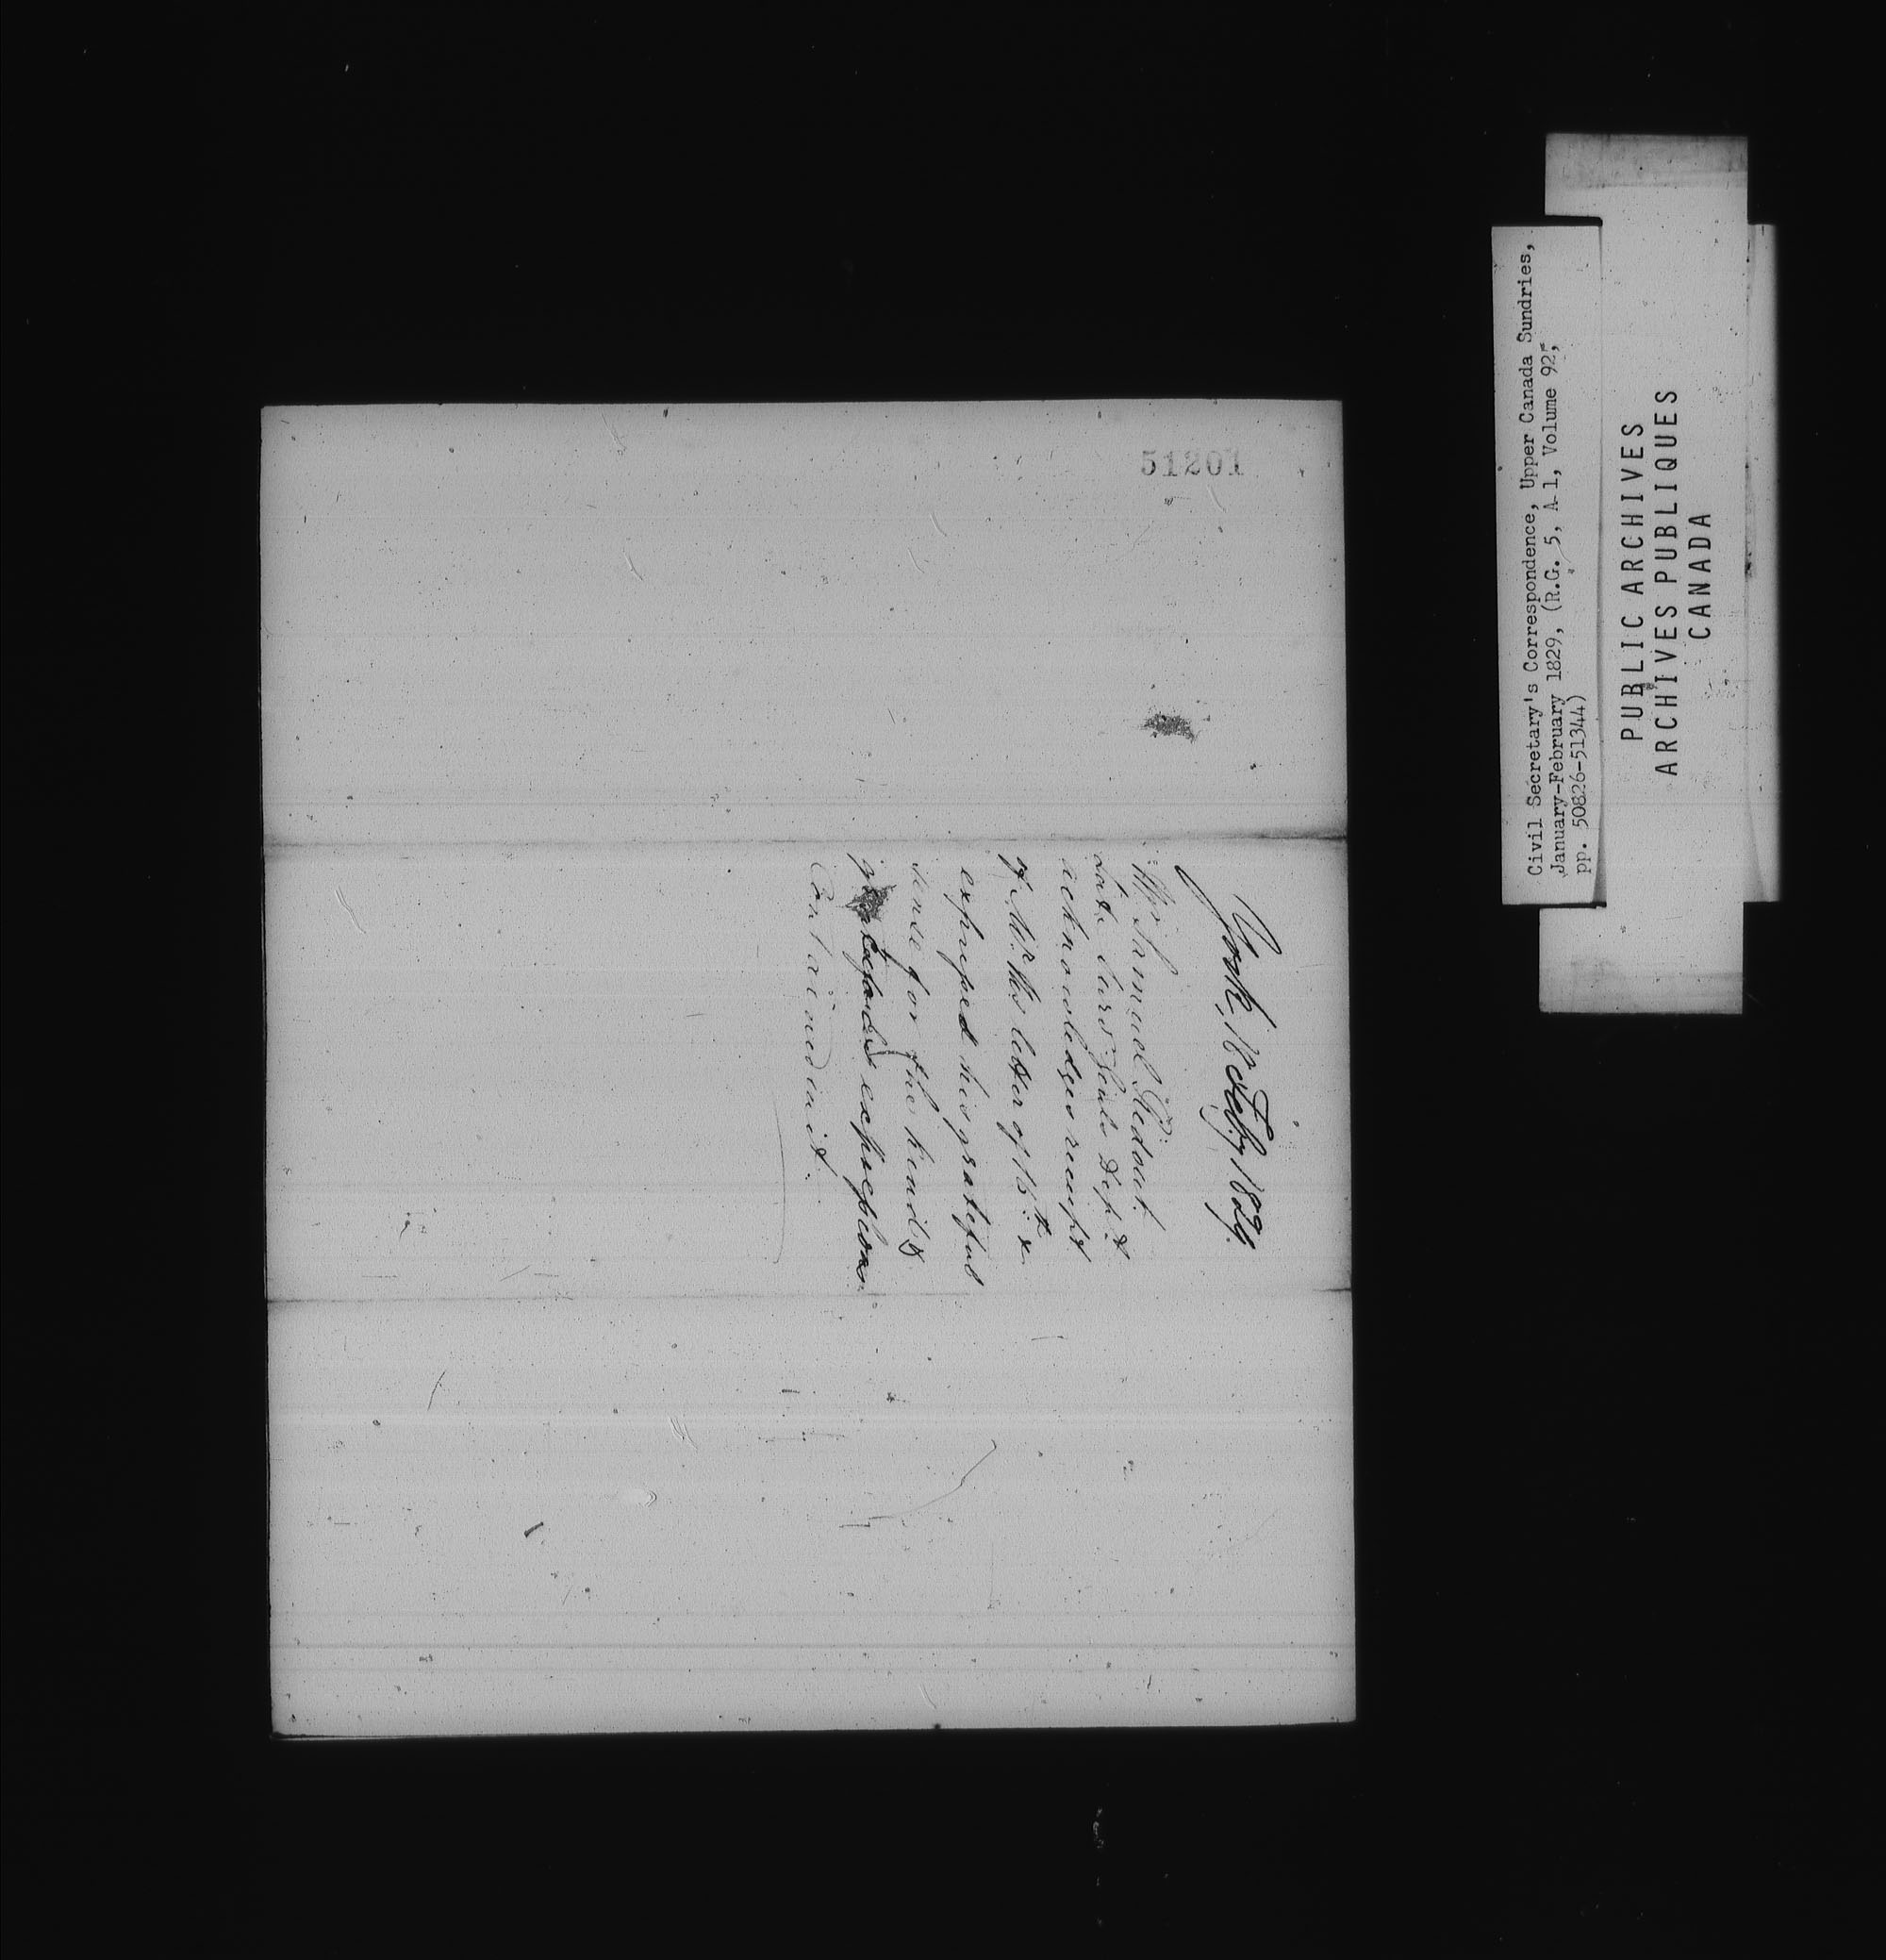 51201
York, 18 Feby 1829.
Mr Samuel Ridout.
late Survr Genls Dept
acknowledges receipt
of Mr. letter of 16th &
expressed his grateful
sense for the kind &
expressions
Contained in it.
Civil Secretary's Correspondence, Upper Canada Sundries,
January-February 1829, (R.G. 5, A 1, Volume 92,
pp. 50826-51344)
PUBLIC ARCHIVES
ARCHIVES PUBLIQUES
CANADA